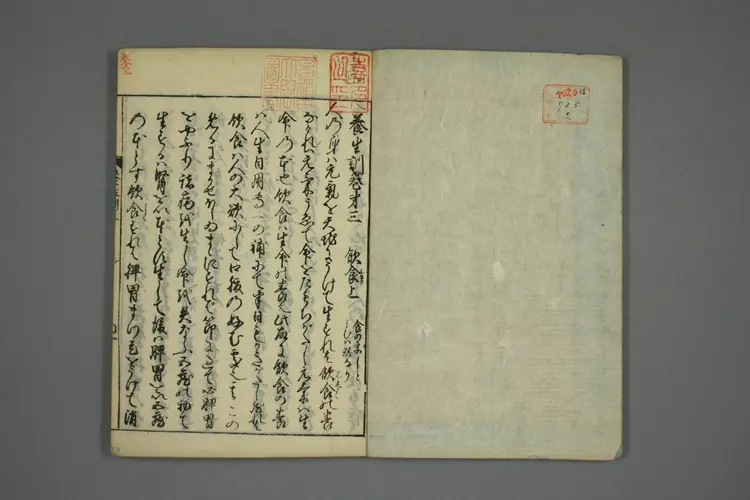 養生訓巻第三 飲食上
人の身は元気を天地にうけて生ずれ共飲食の養
なければ元気うゑて命をたもちがたし元気は生
命の本也飲食は生命の養也此故に飲食の養
は人生日用専一の補にて半日もかきがたし然れ共
飲食は人の大欲にして口腹の好む処也其この
めるにまかせほしゐまゝにすれば節に過て必脾胃
をやぶり諸病を生じ命を失なふ五臓の初て
生ずるは腎を以本とす生じて後は脾胃を以五臓
の本とす飲食すれば脾胃まづ是をうけて消